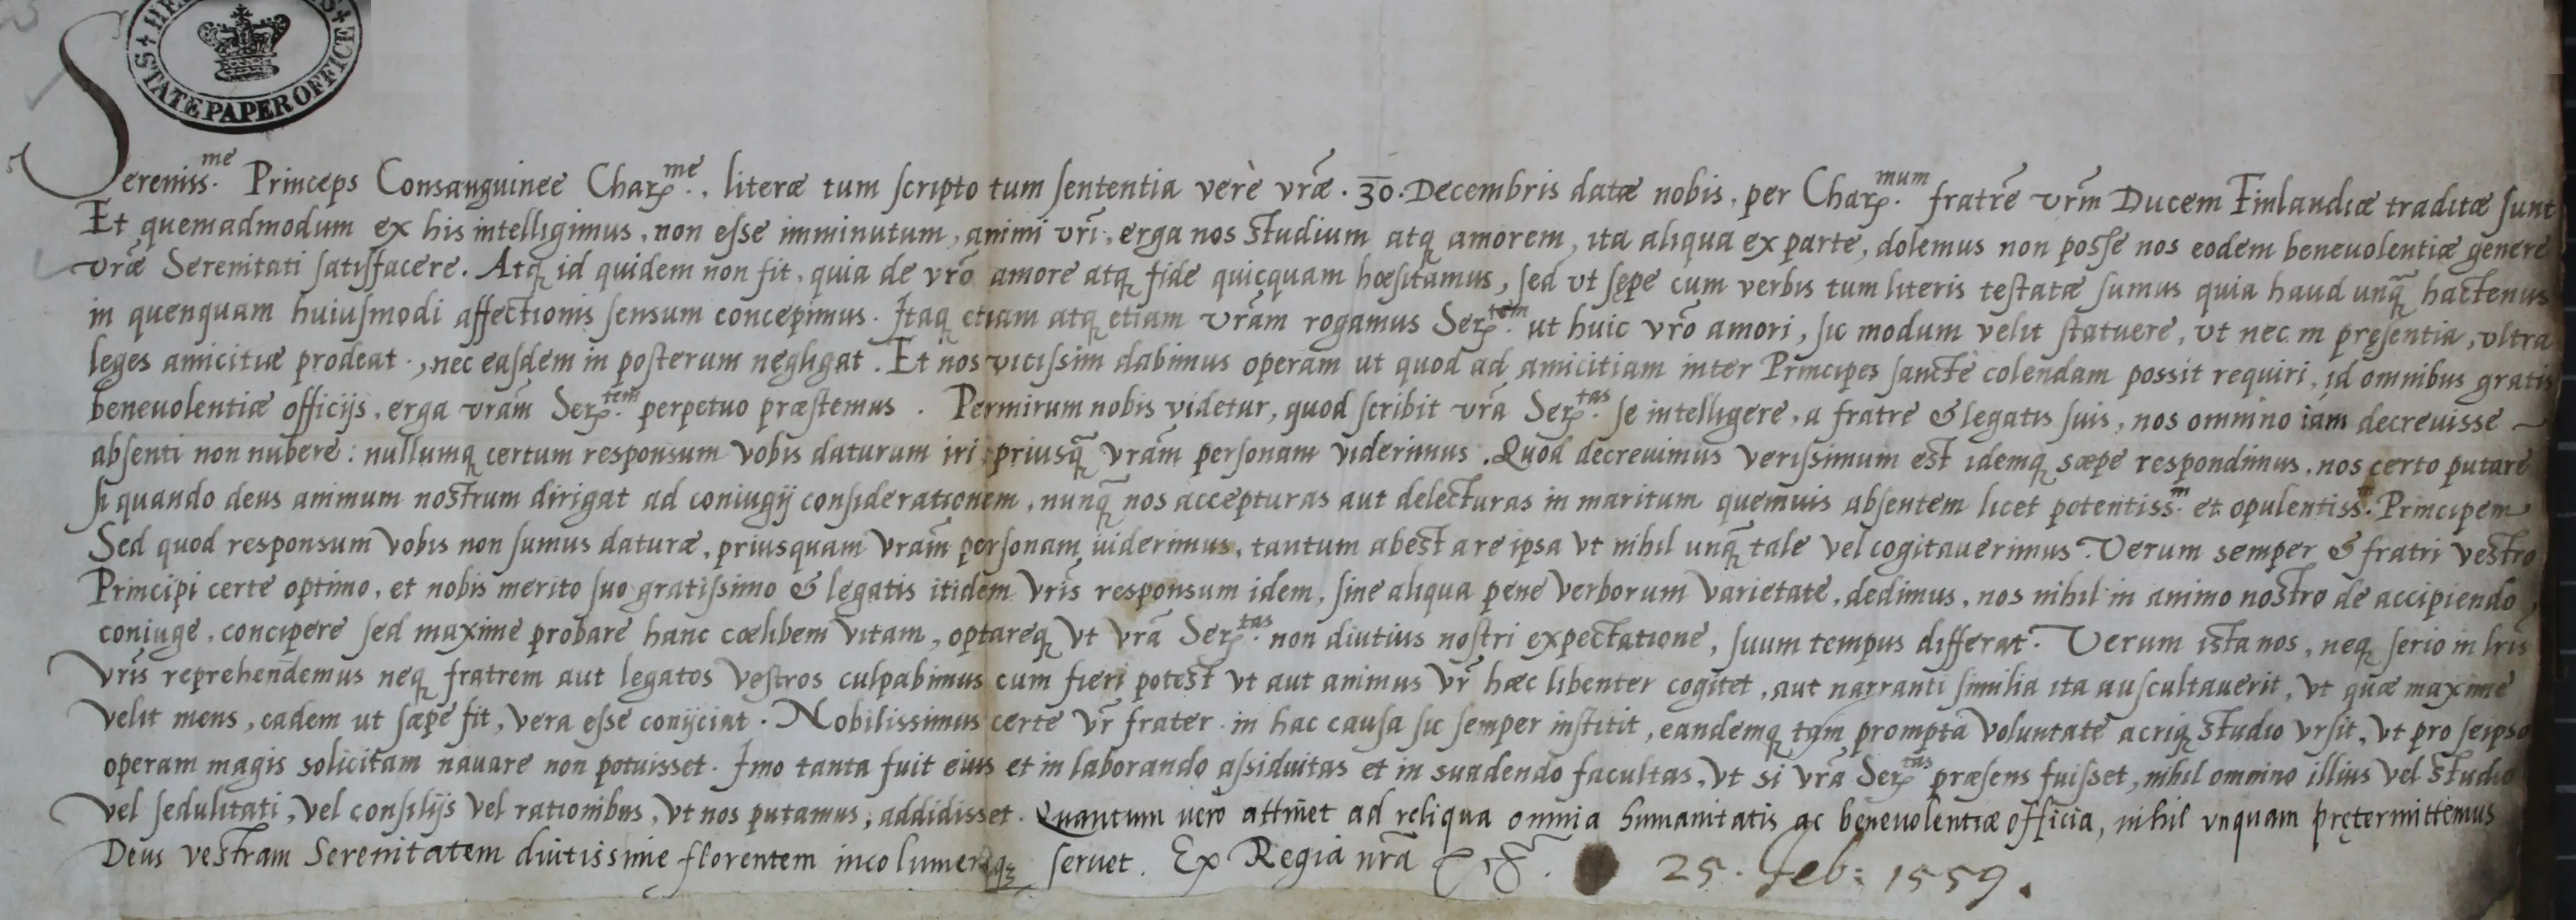 STATE PAPER OFFICE
Sereniss.me Princeps Consanguinee Char.me, literæ tum scripto tum sententia verè vræ . 30 . Decembris datæ nobis, per Char.mum fratrē vrm̄ Ducem Finlandiæ traditæ sunt
Et quemadmodum ex his intelligimus, non esse imminutum, animi vri, erga nos studium atq amorem, ita aliqua ex parte, dolemus non posse nos eodem beneuolentiæ genere
vræ Serenitati satisfacere. Atq id quidem non fit, quia de vrō amore atq fide quicquam hæsitamus, sed vt sępe cum verbis tum literis testatæ sumus quia haud unq̄ hactenus
in quenquam huiusmodi affectionis sensum concepimus. Itaq etiam atq etiam vrām rogamus Ser.tem ut huic vrō amori, sic modum velit statuere, vt nec in pręsentia, vltra
leges amicitiæ prodeat, nec easdem in posterum negligat. Et nos vicissim dabimus operam ut quod ad amicitiam inter Principes sanctè colendam possit requiri, id omnibus gratis
beneuolentiæ officijs, erga vrām Ser.tem perpetuo præstemus. Permirum nobis videtur, quod scribit vrā Ser.tas se intelligere, a fratre & legatis suis, nos omnino iam decreuisse
absenti non nubere: nullumq certum responsum vobis daturum iri priusq̄ vrām personam viderimus. Quod decreuimus verissimum est idemq sæpe respondimus, nos certo putare
si quando deus animum nostrum dirigat ad coniugij considerationem, nunq̄ nos accepturas aut delecturas in maritum quemuis absentem licet potentiss.m et opulentiss.m Principem
Sed quod responsum vobis non sumus daturæ, priusquam vrām personam uiderimus, tantum abest a re ipsa vt nihil unq̄ tale vel cogitauerimus. Verum semper & fratri vestro
Principi certe optimo, et nobis merito suo gratissimo & legatis itidem vrīs responsum idem, sine aliqua pene verborum varietate, dedimus, nos nihil in animo nostro de accipiendo
coniuge, concipere sed maxime probare hanc cœlibem vitam, optareq vt vrā Ser.tas non diutius nostri expectatione, suum tempus differat. Verum ista nos, neq serio in lris
vrīs reprehendemus neq fratrem aut legatos vestros culpabimus cum fieri potest vt aut animus vr̄ hæc libenter cogitet, aut narranti similia ita auscultauerit, vt quæ maxime
velit mens, eadem ut sæpe fit, vera esse conijciat. Nobilissimus certe vr̄ frater in hac causa sic semper institit, eandemq tam prompta voluntate acriq studio vrsit, vt pro seipso
operam magis solicitam nauare non potuisset. Imo tanta fuit eius et in laborando assiduitas et in suadendo facultas, vt si vrā Ser.tas præsens fuisset, nihil omnino illius vel studio
vel sedulitati, vel consilijs vel rationibus, vt nos putamus, addidisset. Quantum uero attinet ad reliqua omnia humanitatis ac beneuolentiæ officia, nihil vnquam prętermittemus
Deus vestram Serenitatem diutissime florentem incolumemq seruet. Ex Regia nrā 25. Feb: 1559.